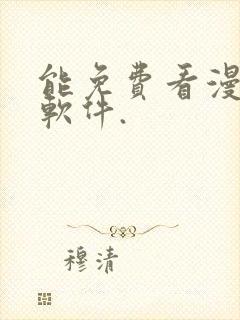 能免費看漫
軟件.
穆清